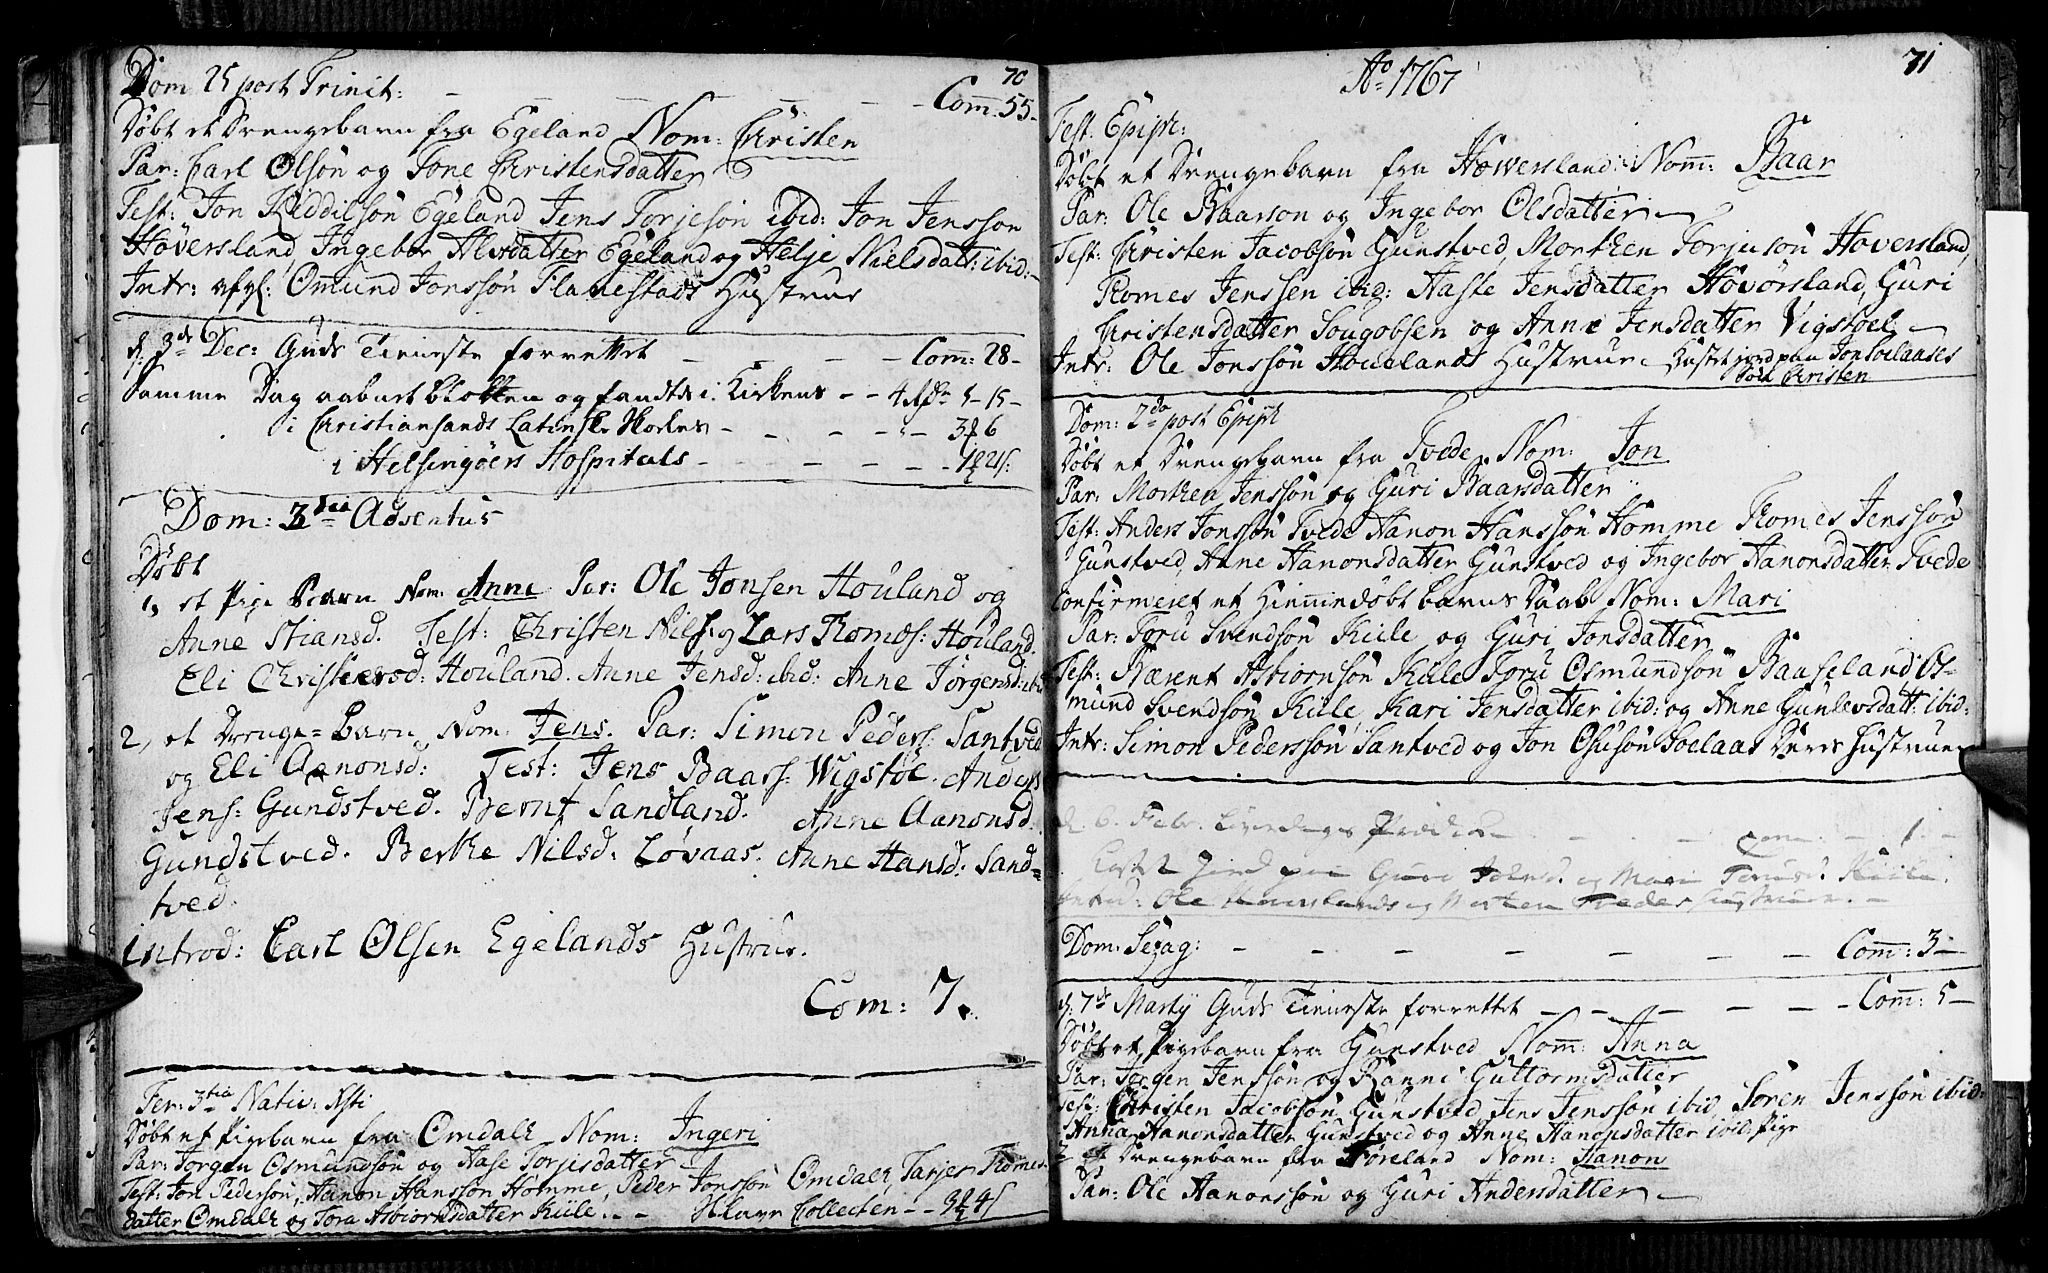 70
Dom 25 post Trinit: - - - - - Com: 55-
Døbt et Drengebarn fra Egeland Nom: Christen
Par: Carl Olsøn og Tone Christensdatter
Test: Jon Kiddilsøn Egeland Jens Torjesøn ibid: Jon Jenssøn
Høversland, Ingebor Alvsdatter Egeland og Helje Nielsdatt: ibid:-
Intr: Omund Jonssøn Flanestads Hustrue
d: 3de Dec: Guds Tieneste forrettet - - - Com: 28-
Samme Dag aabnet Blokken og fandtes i Kirkens - - 4
i Christiansands Latinske Skoles - - - - 3 6
i Helsingøers Hospitals - - - -
Dom: 3tia Adventus
Døbt
1, et Pige Barn Nom: Anne Par: Ole Jonsen Houland og
Anne Stiansd. Test: Christen Nils: og Lars Thomæs: Houland.
Eli Houland. Anne Jensd: ibid: Anne Jørgensd: ibid
2, et Drenge-Barn Nom: Jens. Par: Simon Peders: Santved
og Eli Aanonsd: Test: Jens Baars: Wigstøl. Anders
Jens: Gundstved. Bernt Sandland. Anne Aanonsd.
Gundstved. Berthe Nilsd: Løvaas. Anne Hansd: Sand=
tved.
Introd: Carl Olsen Egelands Hustrue.
Com: 7.
Fer: 3tia Nativ: Xsti
Døbt et Pigebarn fra Omdalh Nom: Ingeri
Par: Jørgen Osmundsøn og Aase Torjisdatter
Test: Jon Pedersøn, Aanon Hanssøn Homme, Peder Jonssøn Omdalh, Tarjer Thomes-
datter Omdalh og Tora Asbiornsdatter Kiile. - - Collecten - -
71
Ao 1767
Fest. Epiph:
Døbt et Drengebarn fra Høwersland: Nom: Baar
Par: Ole Baarson og Ingebor Olsdatter
Test: Christen Jacobsøn Gunstved, Morthen Torjusøn Høversland,
Thomes Jenssen ibid: Aaste Jensdatter Høvørsland, Guri
Christensdatter Sougobsen og Anne Jensdatter Vigstøel
Intr: Ole Jonssøn Houelands Hustrue Kastet jord paa Jon Soelaases
Søn Christen
Dom: 2do post Epiph
Døbt et Drengebarn fra Tvede Nom: Jon
Par: Morthen Jenssøn og Guri Baarsdatter
Test: Anders Jonssøn Tvede Aanon Hanssøn Homme Thomes Jenssøn
Gunstved, Anne Aanonsdatter Gunstved og Ingebor Aanonsdatter Tvede
Confirmeret et Hiemmedøbt Barns Daab Nom: Mari
Par: Toru Svendsøn Kiile og Guri Jonsdatter
Test: Bærent Asbiornsøn Kiile Toru Osmundsøn Baaseland Os-
mund Svendsøn Kiile, Kari Jensdatter ibid: og Anne Gunlevsdatt: ibid:
Intr: Simon Pederssøn Santved og Jon Osusøn Soelaas Deres Hustruer
d. 6. Febr. Com: - 1. -
Kastet Jord paa Guri og Mari Kiile.
Introd: Ole og Morten Tvedes Hustruer. -
Dom: Sexag: - - - - - - Com: 3-
d: 7de Martij Guds Tieneste forrettet - - - - Com: 5-
Døbt et Pigebarn fra Gunstved Nom: Anna
Par: Jørgen Jenssøn og Ranni Guttormsdatter
Test: Christen Jacobsøn Gunstved, Jens Jenssøn ibid, Søren Jenssøn ibid:
Anna Aanonsdatter Gunstved og Anne Aanonsdatter ibid: Pige
2 et Drengebarn fra Føreland Nom: Aanon
Par: Ole Aanonssøn og Guri Andersdatter